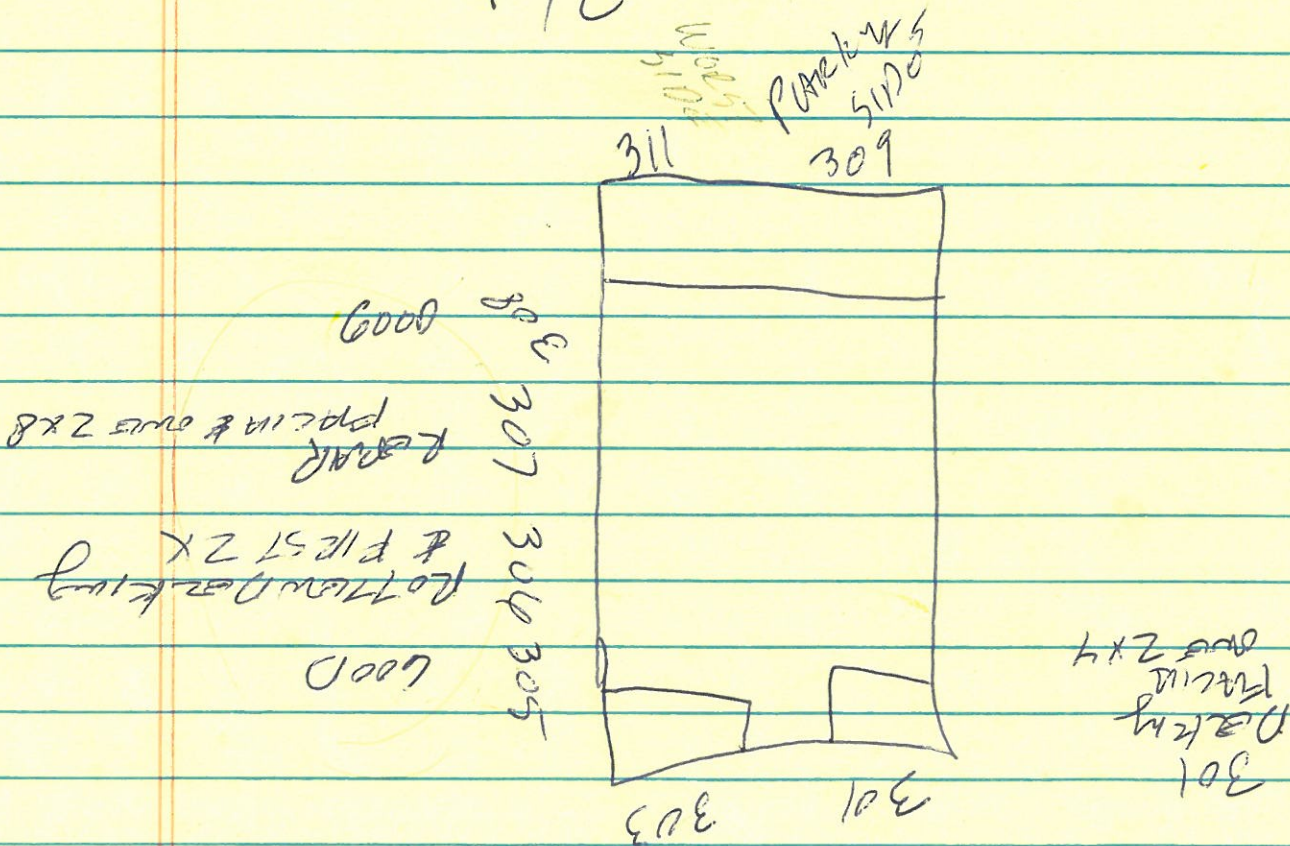 WORST
SIDE
PARKING
SIDE
311
309
308
GOOD
307
REPAIR
FACIA & ONE 2x8
306
ROTTEN Decking
& FIRST 2X
305
GOOD
303
301
301
Decking
FACIA
ONE 2x4